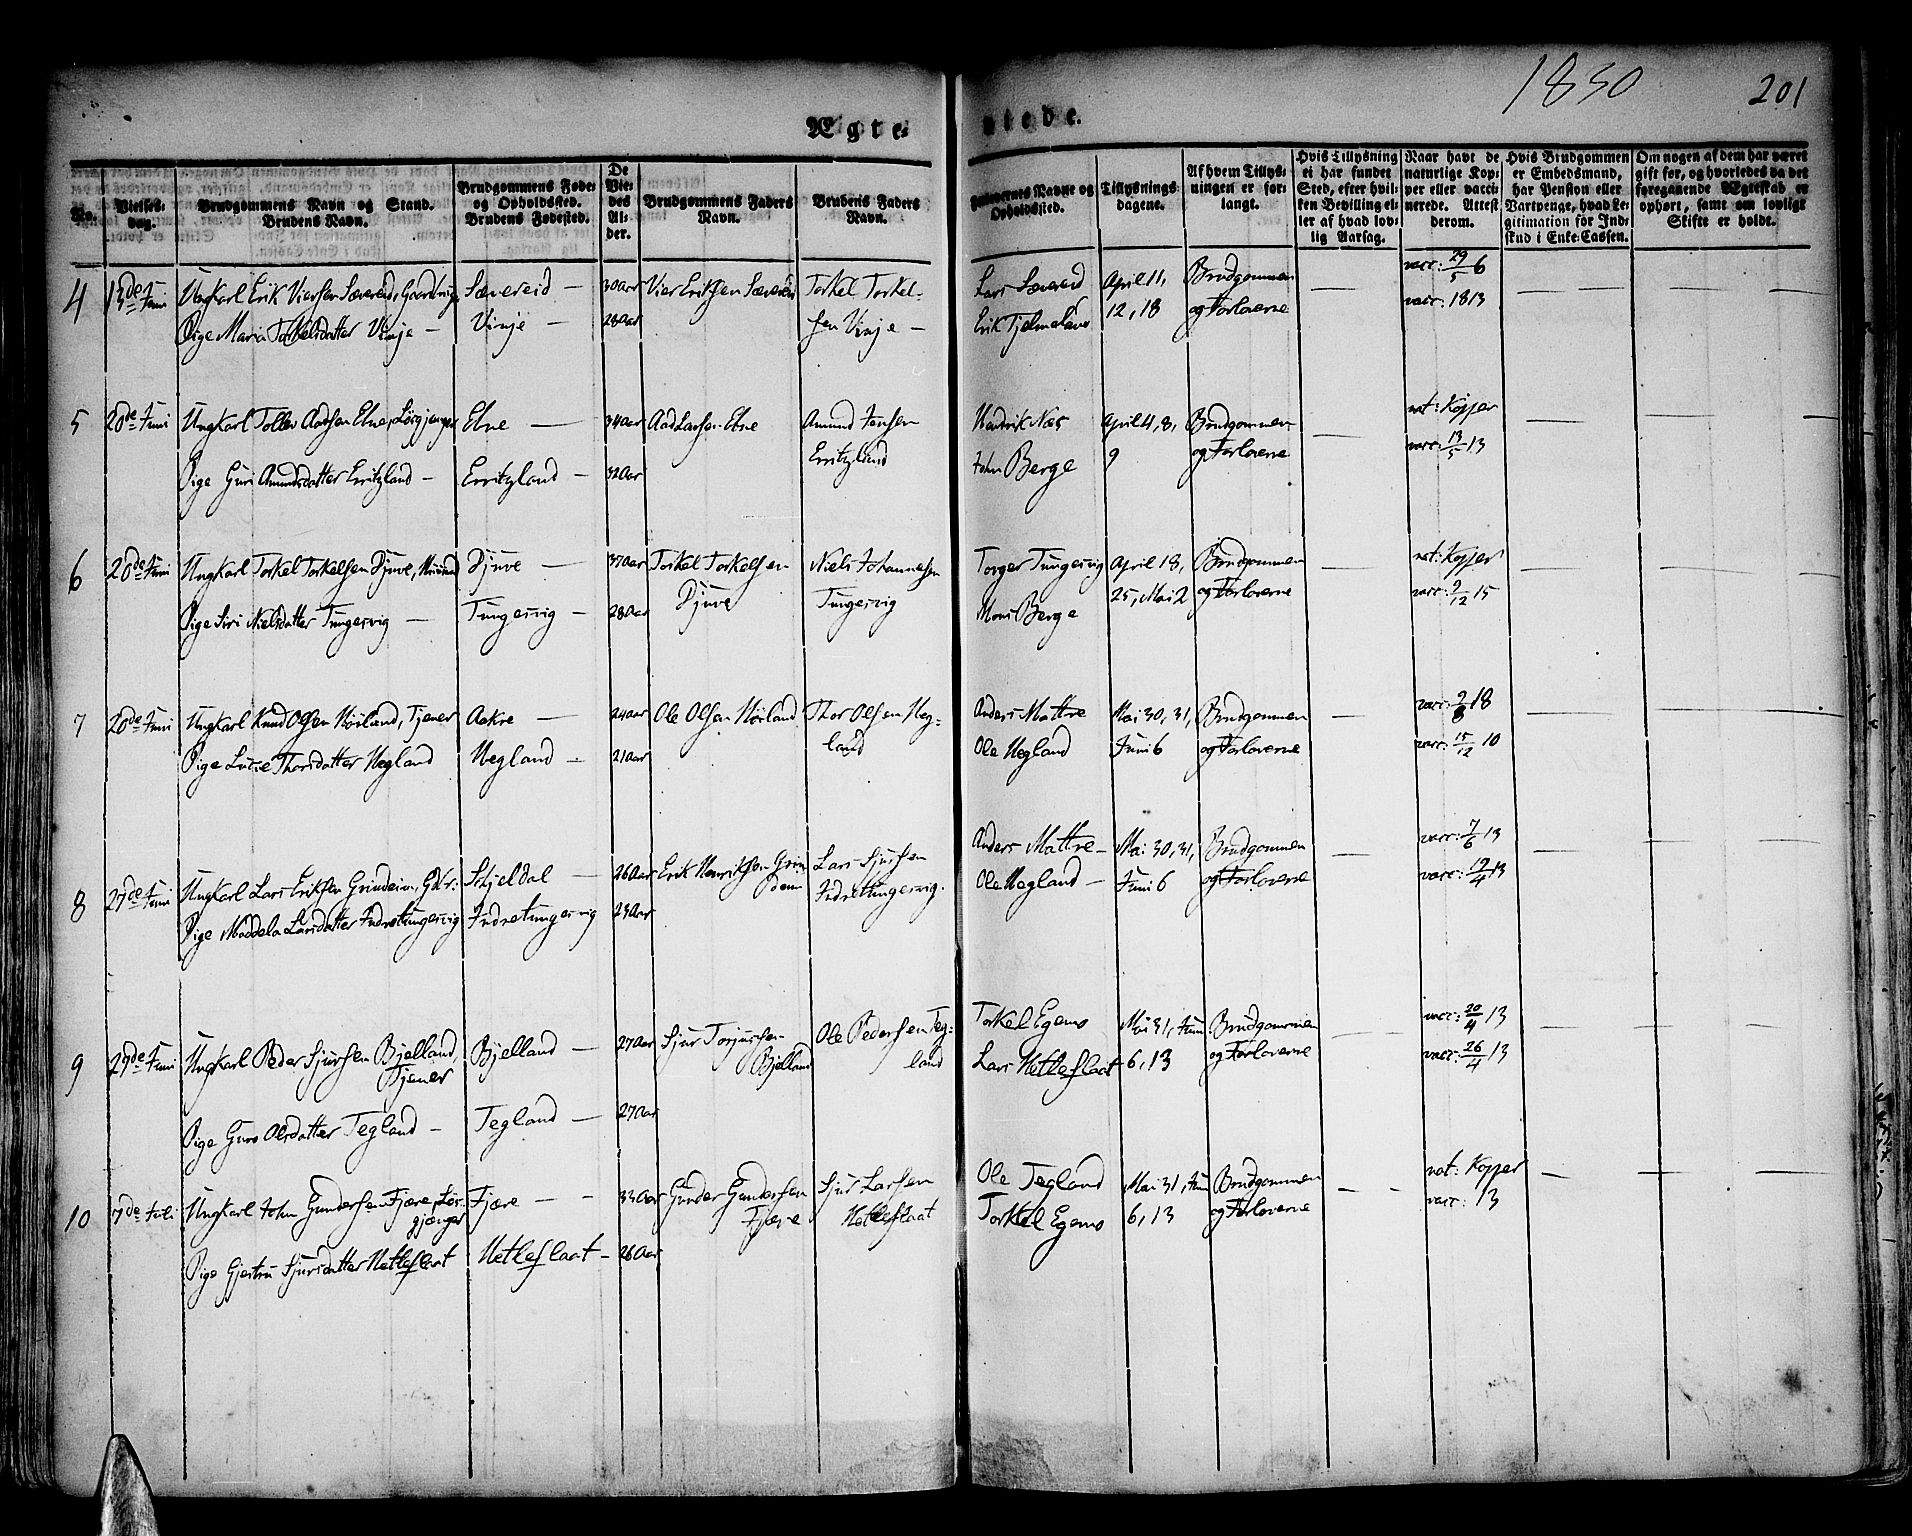 1830
201
Ægte-
viede.
No.
Vielses-
dag.
Brudgommens Navn og Stand.
Brudens Navn.
Brudgommens Føde-
og Opholdssted.
Brudens Fødested.
De
Vie-
des
Al-
der.
Brudgommens Faders
Navn.
Brudens Faders
Navn.
Forlovernes Navne og
Opholdssted.
Tillysnings-
dagene.
Af hvem Tillys-
ningen er for-
langt.
Hvis Tillysning
ei har fundet
Sted, efter hvil-
ken Bevilling el-
ler af hvad lov-
lig Aarsag.
Naar havt de
naturlige Kop-
per eller vacci-
nerede. Attest
derom.
Hvis Brudgommen
er Embedsmand,
har Pension eller
Vartpenge, hvad Le-
gitimation for Ind-
skud i Enke-Cassen.
Om nogen af dem har været
gift før, og hvorledes da det
foregaaende Ægteskab er
ophørt, samt om lovligt
Skifte er holdt.
4 13de Juni Ungkarl Erik Viersen Sævereid, Sævereid — 30 Aar Vier Eriksen Sævereid Torkel Torkel- Lars Sævereid April 11, Brudgommen — — vacc: 29/5 6 — —
Pige Mari Torkelsdatter Vinje — Vinje — 28 Aar sen Vinje — Erik Tjelmeland 12, 18 og Forloverne vacc: 1813
5 20de Juni Ungkarl Tollev Aadsen Ebne, Ebne — 34 Aar Aad Larsen Ebne Amund Jonsen Hendrik Næs April 4, 8, Brudgommen — nat: Kopper — — —
Pige Guri Amundsdatter Erritzland — Erritzland — 32 Aar Erritzland John Berge 9 og Forloverne vacc: 13/5 13
6 20de Juni Ungkarl Torkel Torkelsen Djuve, Djuve — 37 Aar Torkel Torkelsen Niels Johannesen Torger Tungesvig April 18, Brudgommen — nat: Kopper — — —
Pige Siri Nielsdatter Tungesvig — Tungesvig — 28 Aar Djuve Tungesvig Mons Berge 25, Mai 2 og Forloverne vacc: 9/12 15
7 20de Juni Ungkarl Knud Olsen Høiland, Tjener Aakre — 24 Aar Ole Olsen Høiland Thor Olsen Heg- Anders Mattre Mai 30, 31, Brudgommen — vacc: 2/8 18 — — —
Pige Lucie Thorsdatter Hegland Hegland — 21 Aar land Ole Hegland Juni 6 og Forloverne vacc: 15/12 10
8 27de Juni Ungkarl Lars Eriksen Grindeim, Skjeldal — 26 Aar Erik Henriksen Grin- Lars Sjursen Anders Mattre — Mai 30, 31, Brudgommen — vacc: 7/6 13 — — —
Pige Maddela Larsdatter Indretungesvig Indretungesvig 23 Aar deim Indretungesvig. Ole Hegland — Juni 6 og Forloverne vacc: 19/4 13
9 29de Juni Ungkarl Peder Sjursen Bjelland, Bjelland — 27 Aar Sjur Torjussen Ole Pedersen Teg- Torkel Egenes Mai 31, Juni Brudgommen — — vacc: 20/4 13 — — —
Tjener Bjelland land Lars Hetleflaat 6, 13 og Forloverne vacc: 26/4 13
Pige Guro Olsdatter Tegland — Tegland — 27 Aar
10 7de Juli Ungkarl John Gundersen Fjære, Løs- Fjære — — 33 Aar Gunder Gundersen Sjur Larsen Ole Tegland Mai 31, Juni Brudgommen — — nat: Kopper — — —
gjænger Fjære Hetleflaat Torkel Egenes 6, 13 og Forloverne vacc: 13
Pige Gjertru Sjursdatter Hetleflaat Hetleflaat — 26 Aar